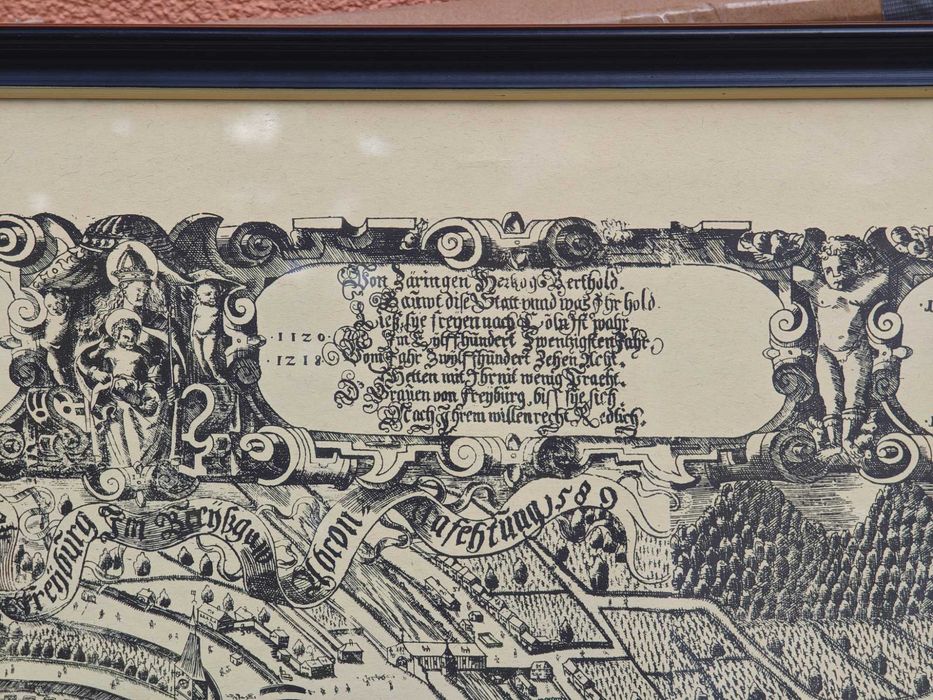 Von Zäringen Hertzog Berthold.
Bauwt dise Statt vnnd was Ihr hold.
Ließ sye freyen nach Cöln Ist wahr
·1120· Im Eylffhundert Zwentzigsten Jahr,
·1218· Vom Jahr Zwölffhundert Zehen Acht.
Hetten mit Ihr nit wenig Pracht.
Grauen von freyburg, biss sye sich
Nach Ihrem willen recht Redlich.
Freyburg Im Breyßgaw Abcon-
trafehtung 1589